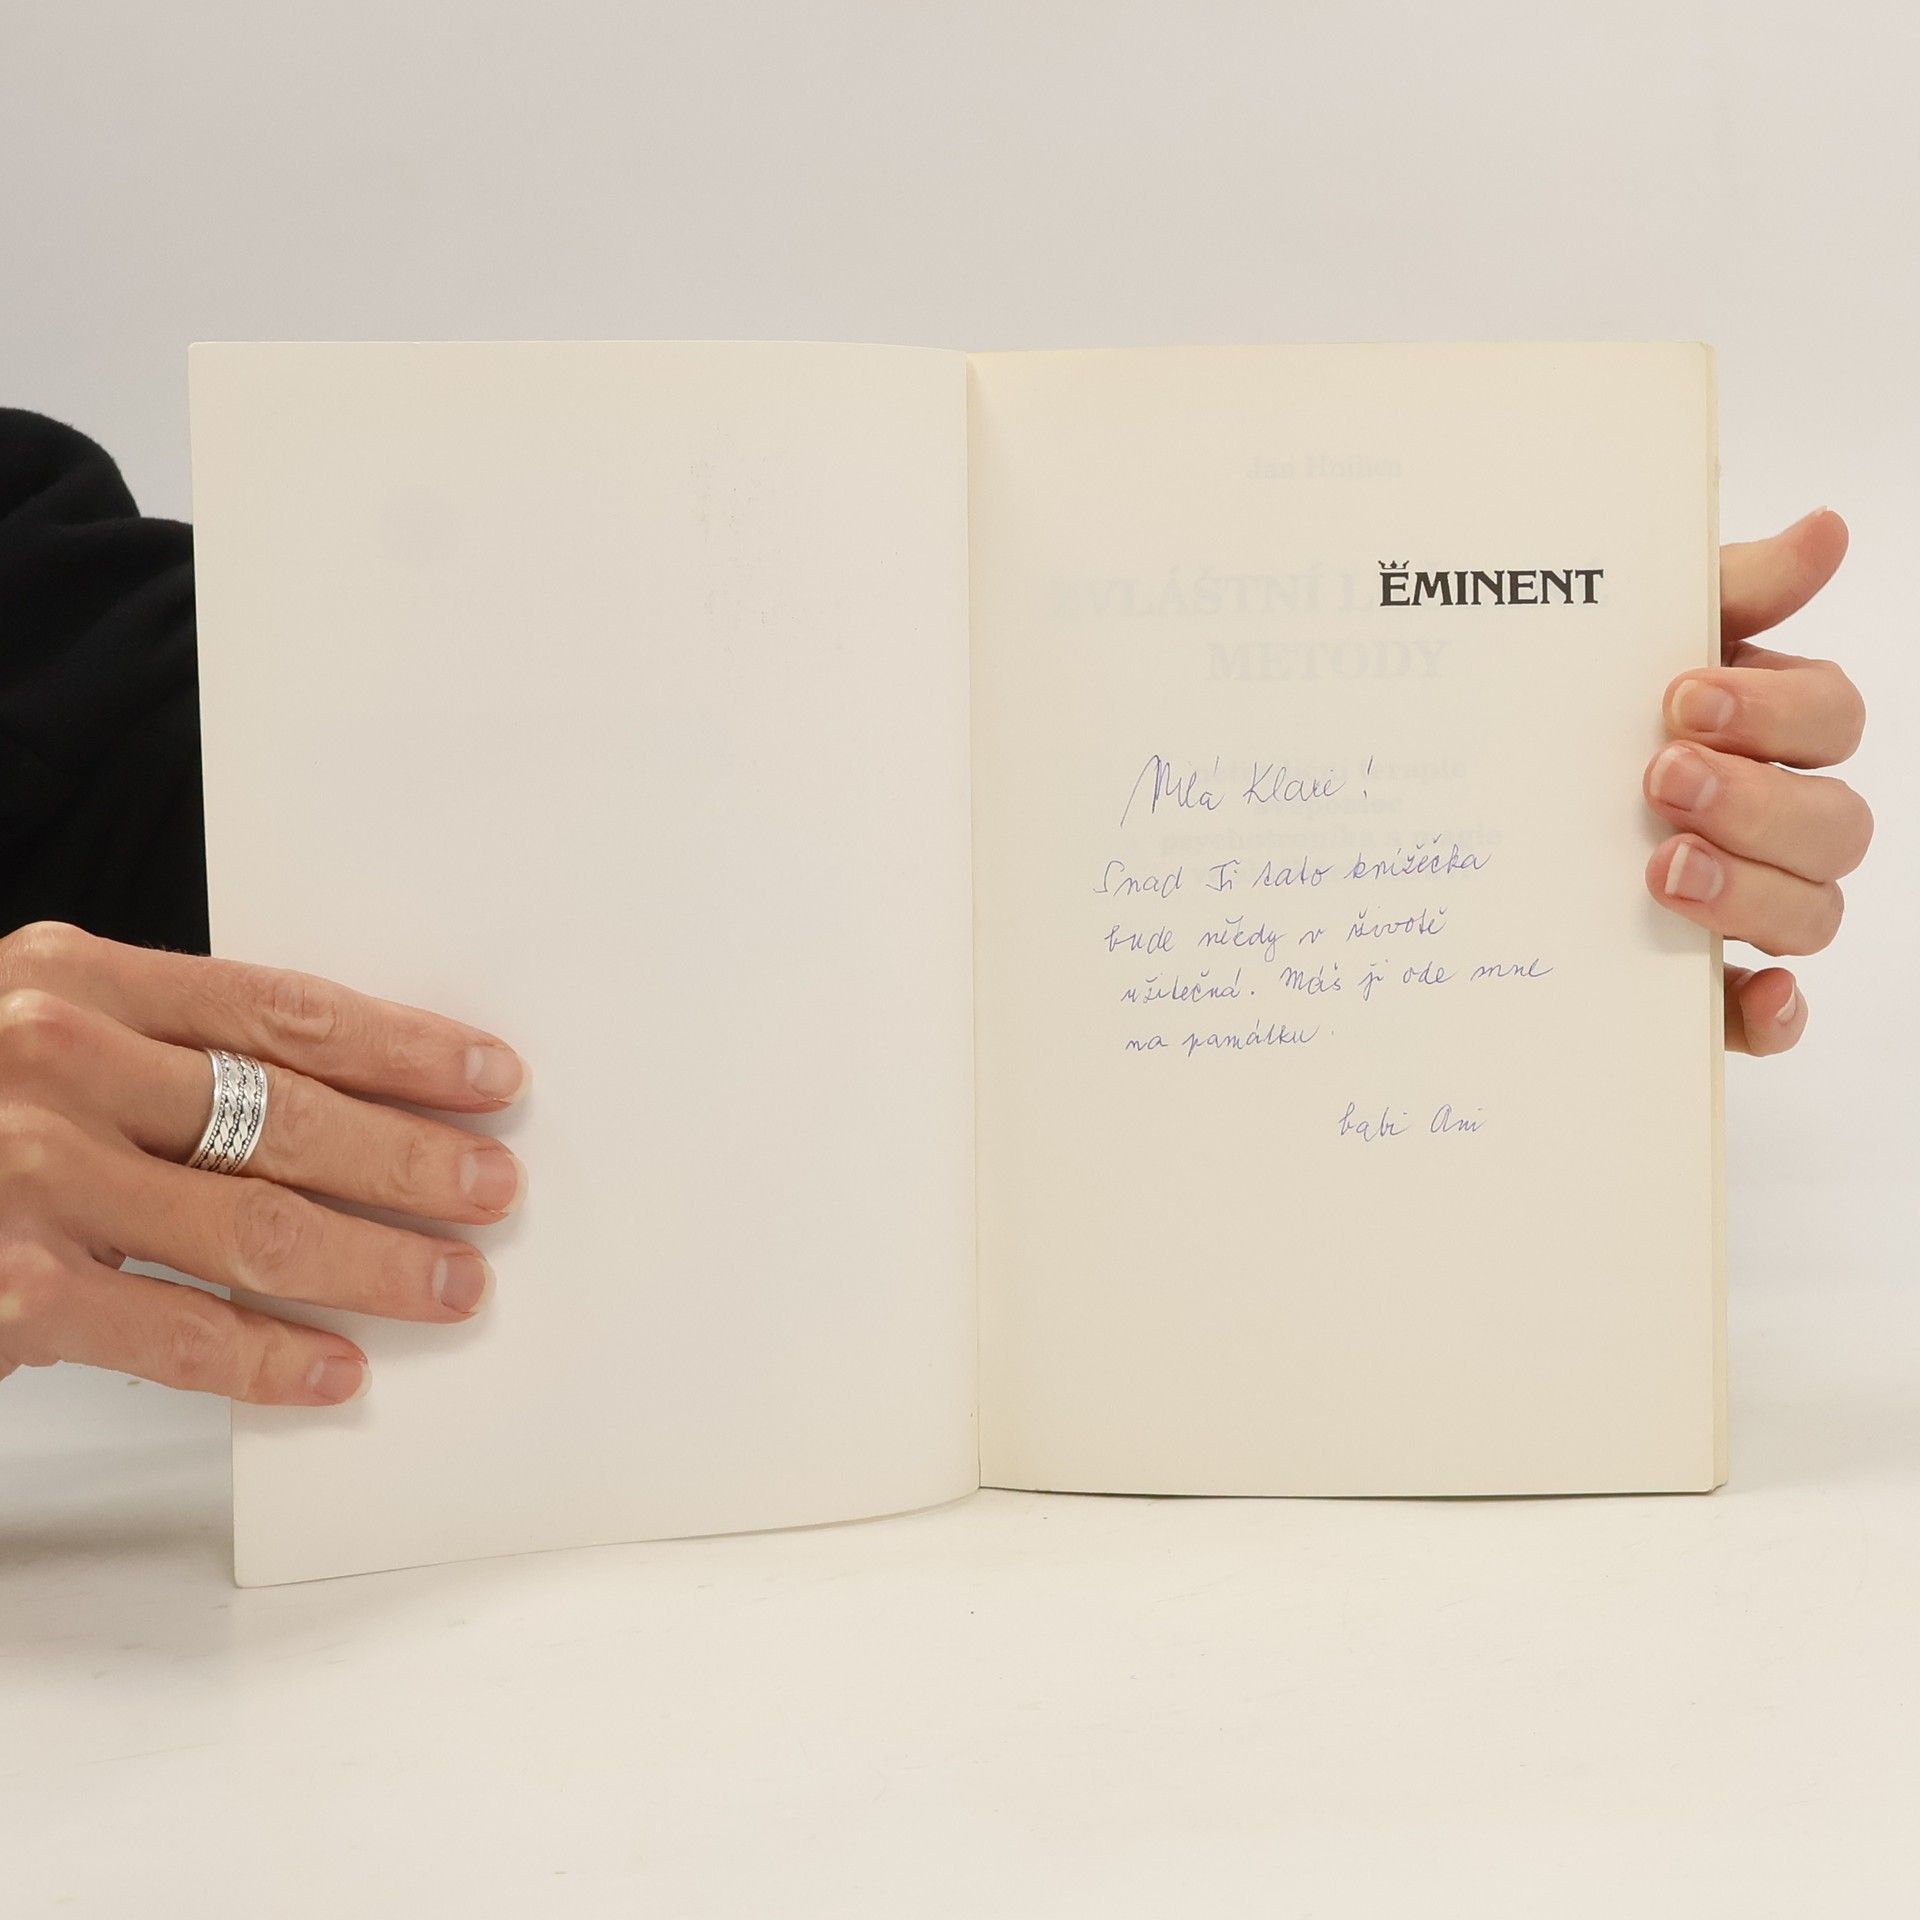 EMINENT
ZVLÁŠTNÍ L
METODY
Milá Klárí!
Snad Ti tato knížečka
bude někdy v životě
užitečná. Máš ji ode mne
na památku.
babi Ani